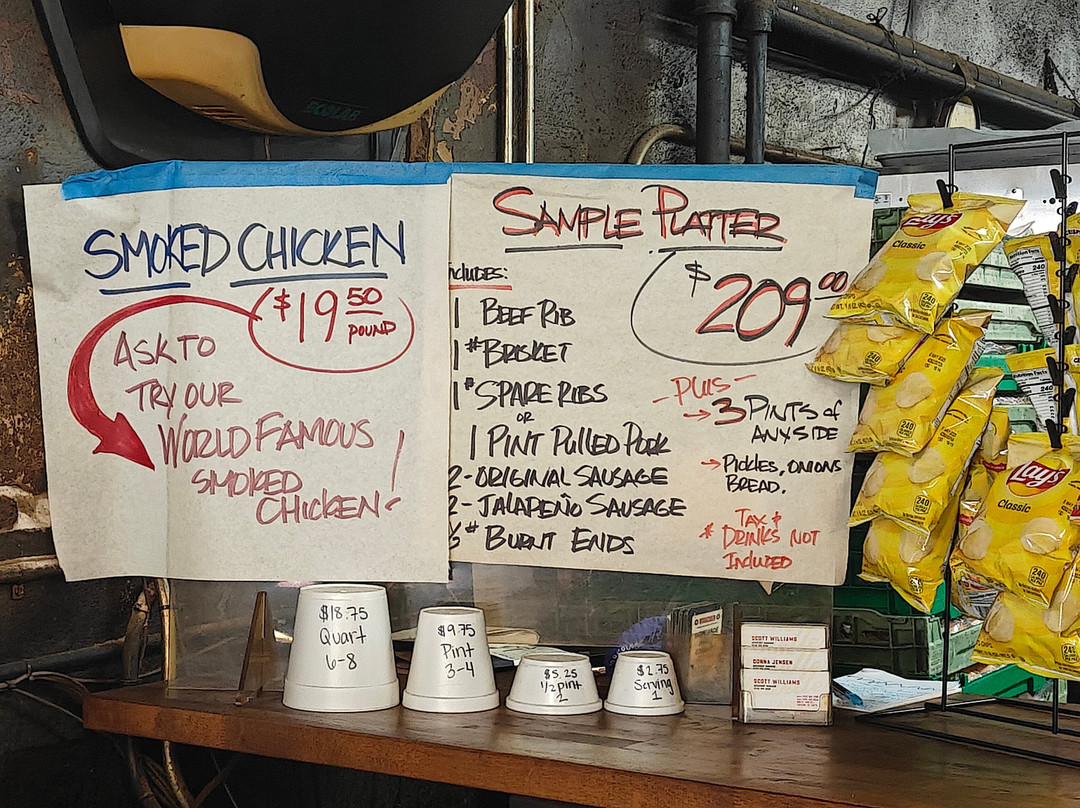 ECOLAB
SMOKED CHICKEN
$19.50
POUND
ASK TO
TRY OUR
WORLD FAMOUS
SMOKED
CHICKEN!
SAMPLE PLATTER
$209.00
ncludes:
1 BEEF RIB
1# BRISKET
1# SPARE RIBS
OR
1 PINT PULLED PORK
2-ORIGINAL SAUSAGE
2-JALAPEÑO SAUSAGE
# BURNT ENDS
-PLUS-
→ 3 PINTS of
ANY SIDE
→ PICKLES, ONIONS
BREAD.
* TAX &
DRINKS NOT
INCLUDED
$18.75
Quart
6-8
$9.75
Pint
3-4
$5.25
1/2 pint
2
$2.75
Serving
1
SCOTT WILLIAMS
DONNA JENSEN
SCOTT WILLIAMS
Lay's
Classic
240
240
240
240
240
Nutrition Facts
240
Nutrition Facts
240
Lay's
Classic
240
240